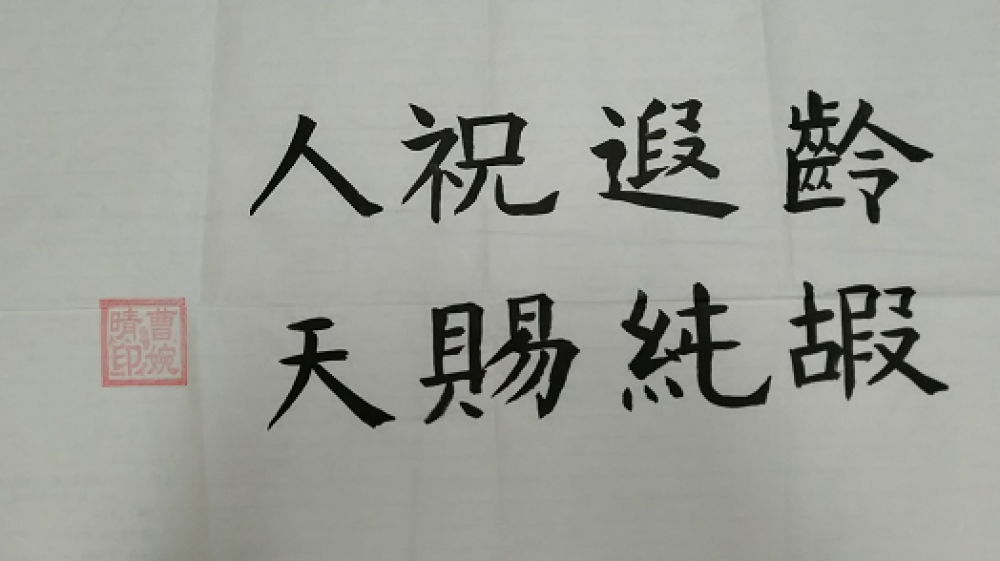 人祝遐齡
天賜純嘏
曹婉
晴印